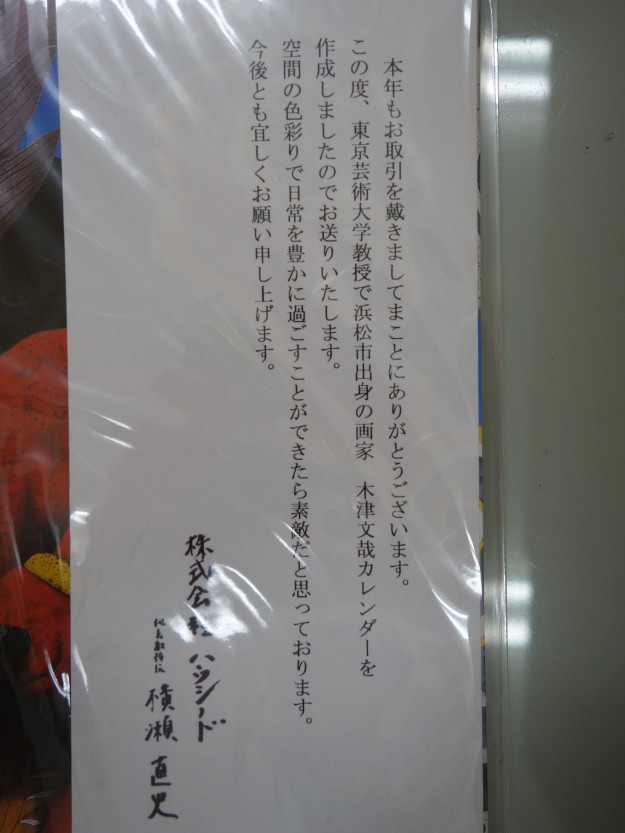 本年もお取引を戴きましてまことにありがとうございます。
この度、東京芸術大学教授で浜松市出身の画家　木津文哉カレンダーを
作成しましたのでお送りいたします。
空間の色彩りで日常を豊かに過ごすことができたら素敵だと思っております。
今後とも宜しくお願い申し上げます。
株式会社ハウシード
代表取締役 横瀬 直史